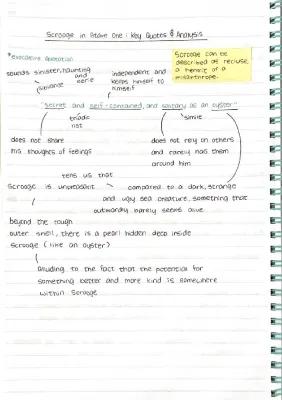 Scrooge in Stave One : Key Quotes & Analysis
Scrooge can be
described as recluse,
a hermit or a
misanthrope.
*evocative quotation
sounds sinister, haunting
and eerie
sibilance
independent and
keeps himself to
himself
"secret and self-contained, and solitary as an oyster"
triadic
list
simile
does not share
his thoughts or feelings
does not rely on others
and rarely has them
around him
tells us that
Scrooge is unpleasant
compared to a dark, strange
and ugly sea creature, something that
outwardly barely seems alive
beyond the tough
outer shell, there is a pearl hidden deep inside
Scrooge (like an oyster)
alluding to the fact that the potential for
something better and more kind is somewhere
within Scrooge